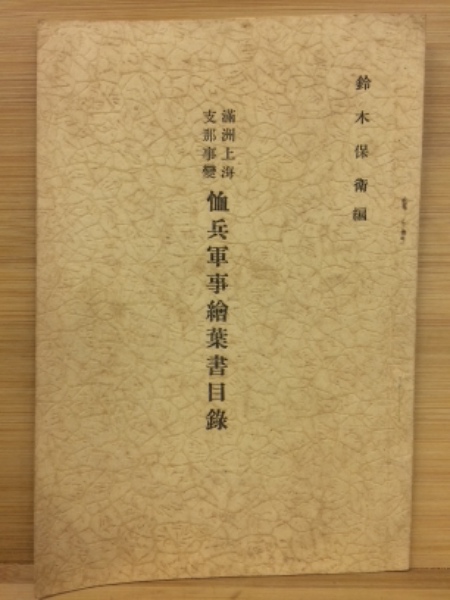 鈴木保衛編
滿洲上海
支那事變
恤兵軍事繪葉書目錄